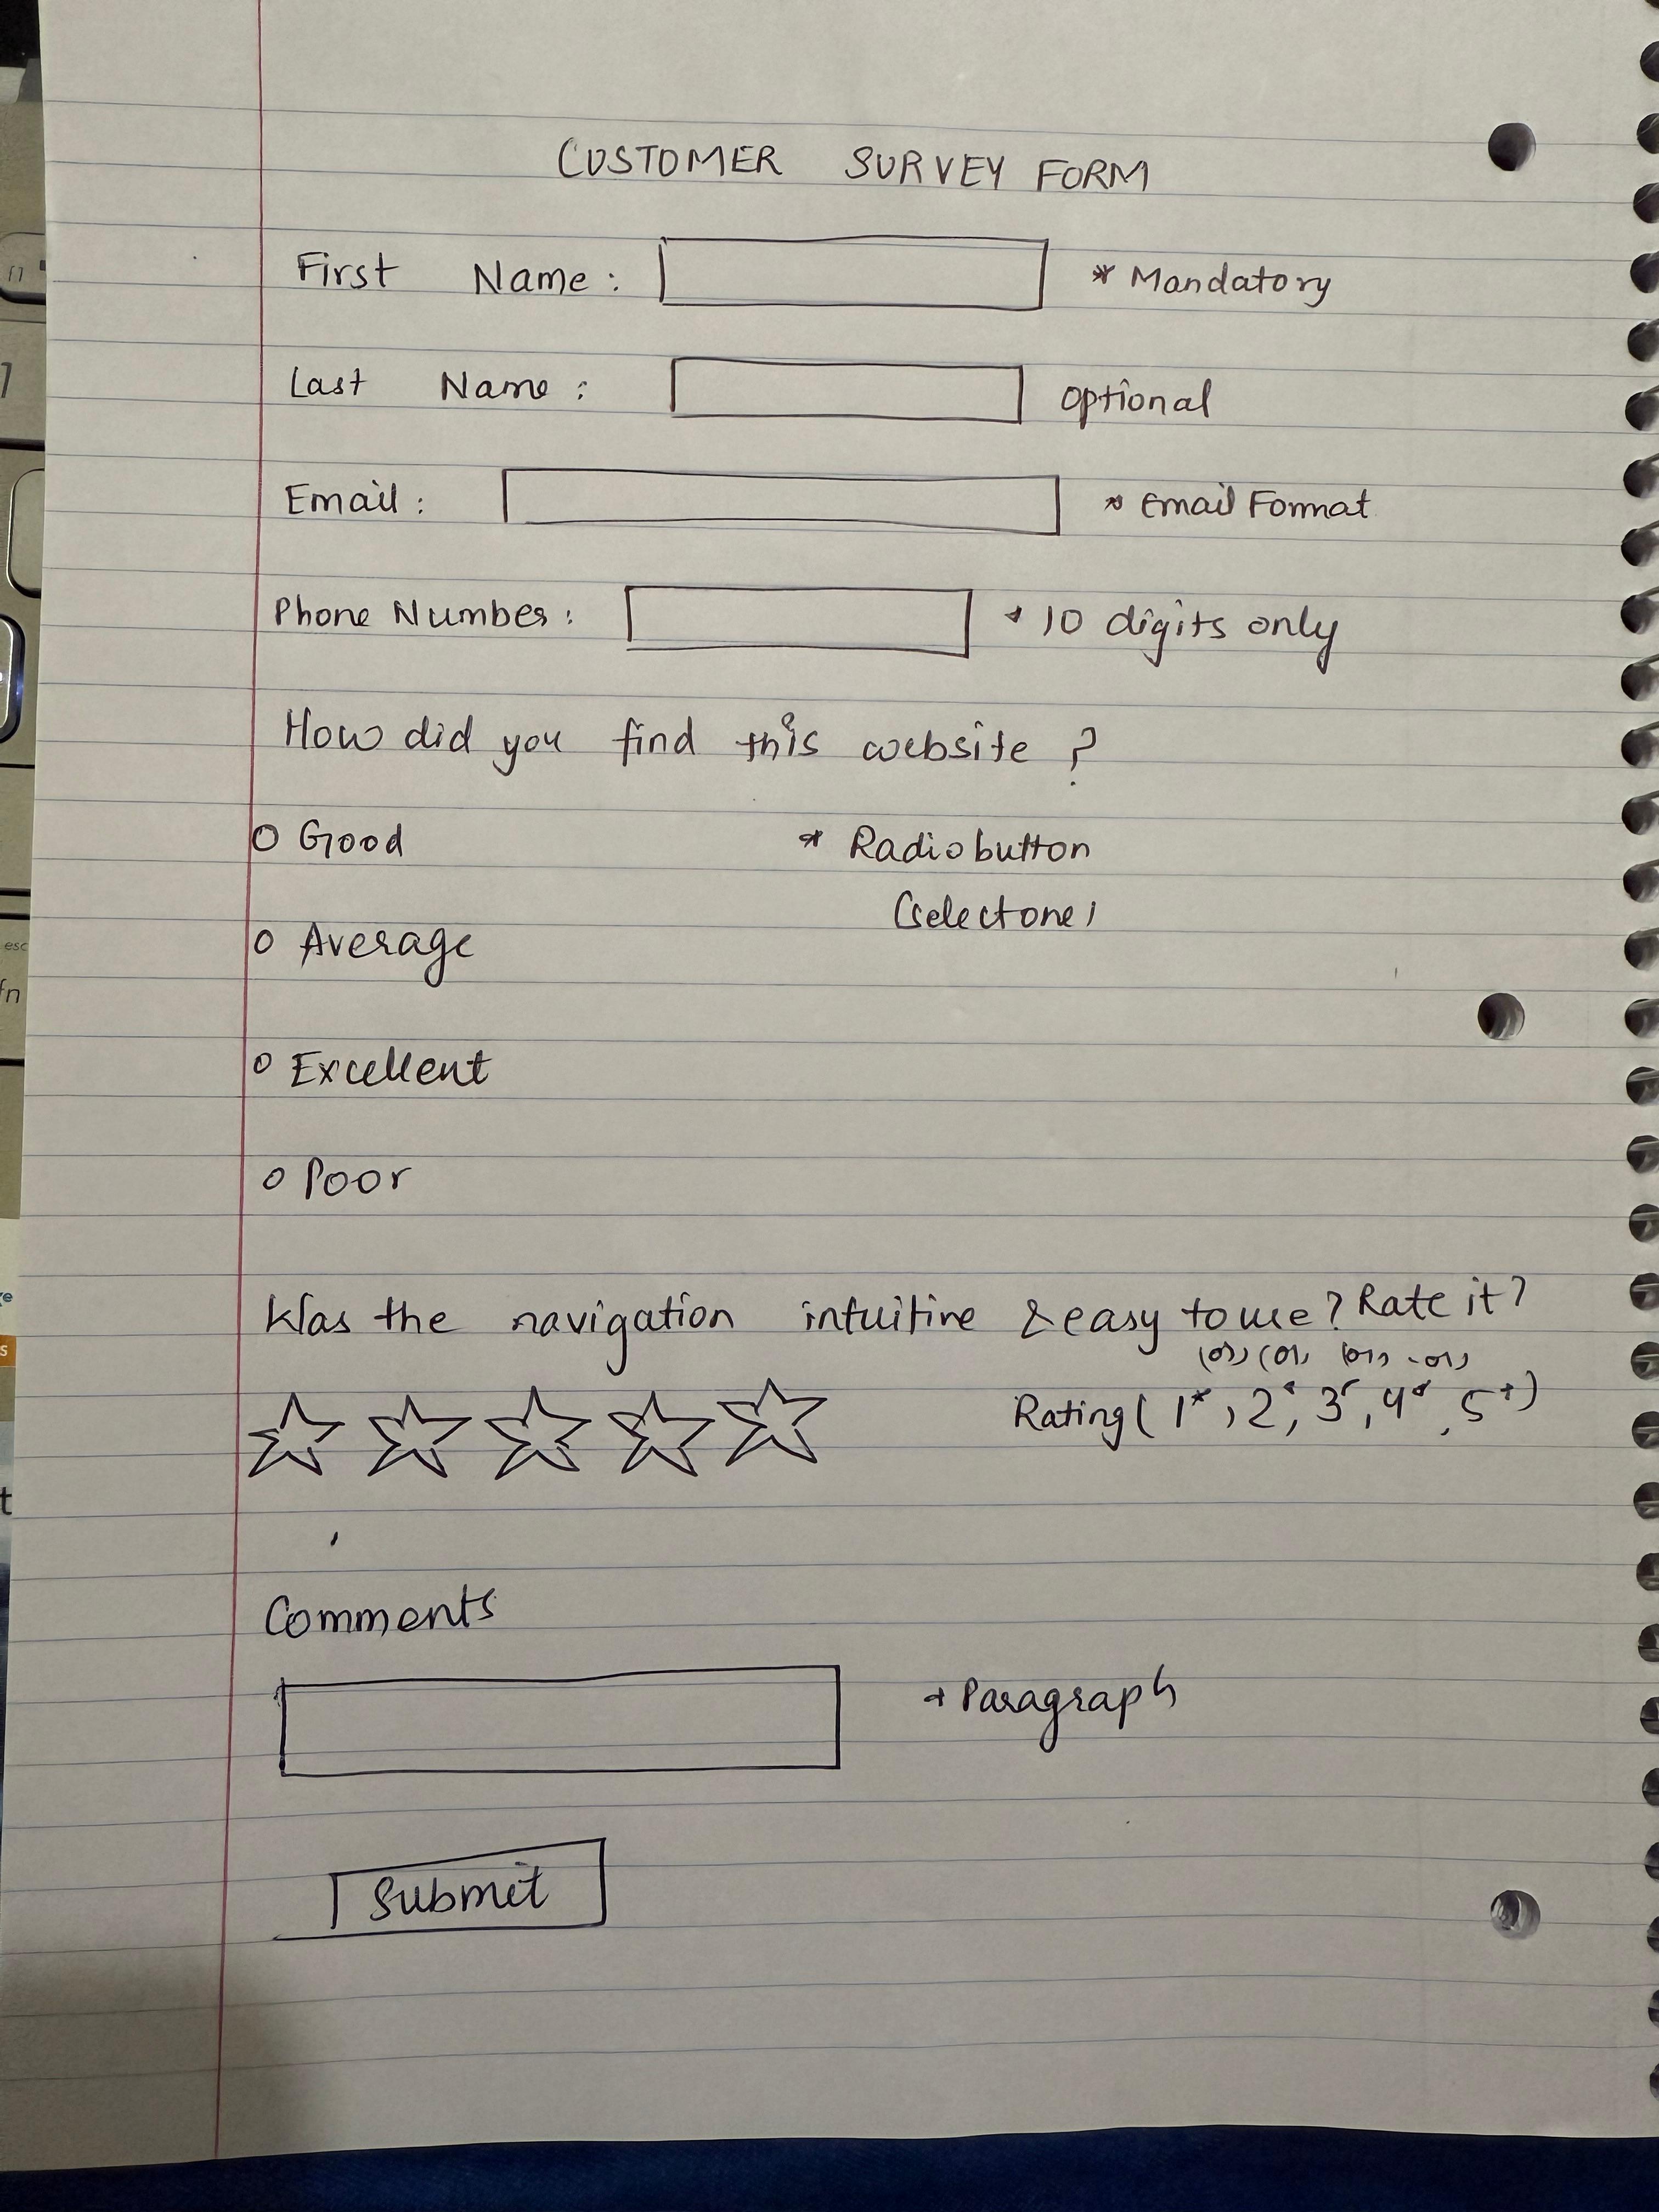 CUSTOMER SURVEY FORM
First Name : * Mandatory
Last Name : optional
Email : * Email Format
Phone Number : * 10 digits only
How did you find this website ?
Good * Radio button
(select one)
Average
Excellent
Poor
Was the navigation intuitive & easy to use? Rate it?
(or) (or) (or) (or)
Rating ( 1*, 2*, 3*, 4*, 5*)
Comments
* Paragraph
Submit
esc
fn